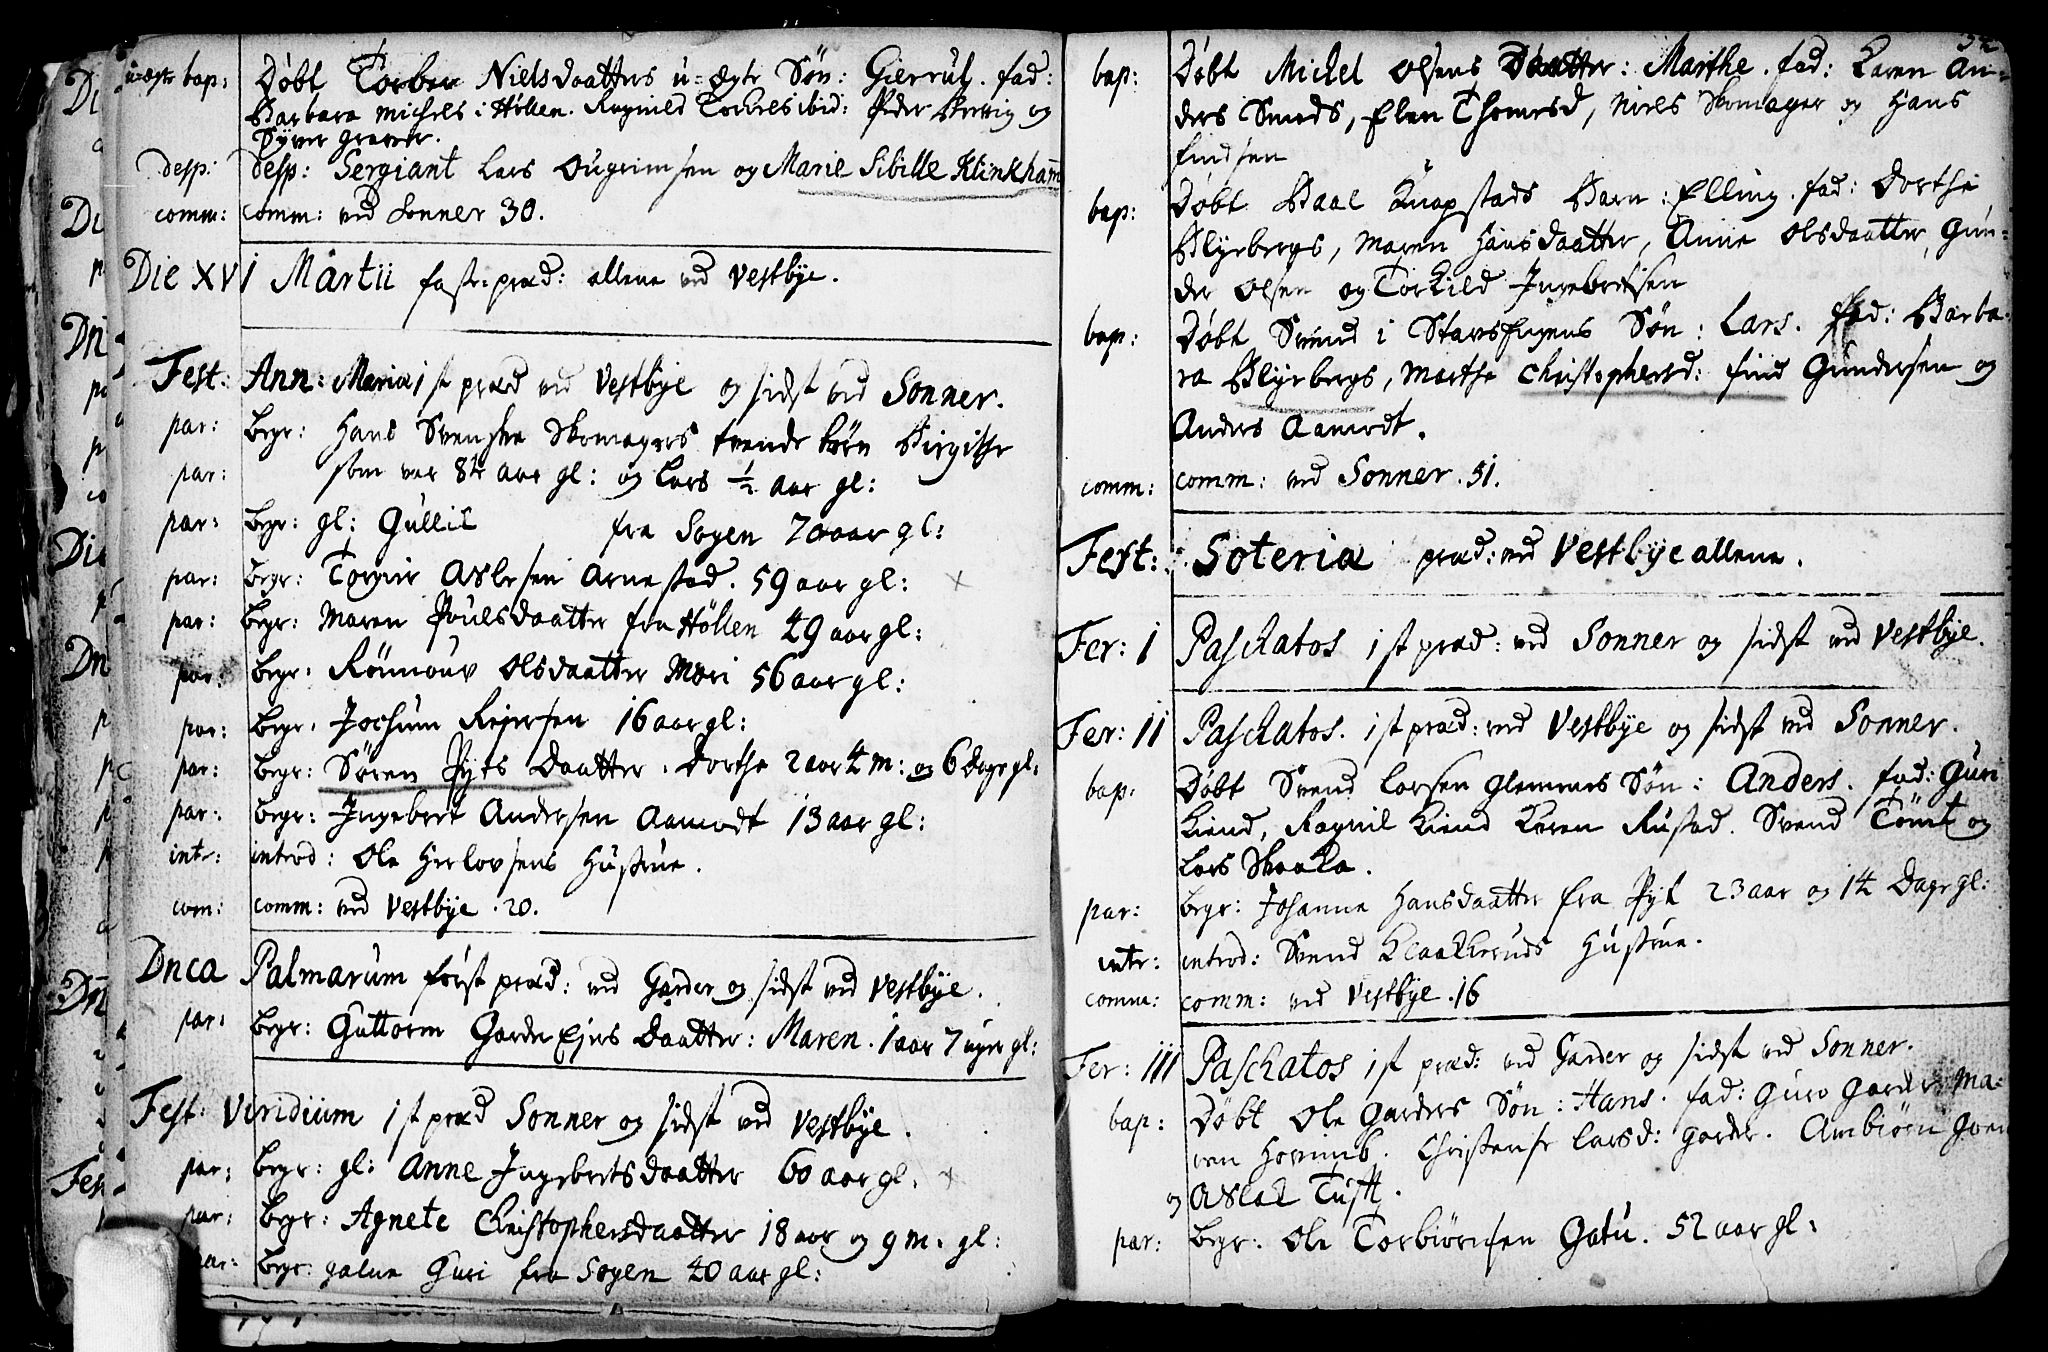 uægte bap: Døbt Torber Nielsdaatters u=ægte Søn: Gierrul. fad:
Barbara Michels i Hollen. Ragnild Torkels ibid: Peder Brevig og
Syver graver.
desp: desp: Sergiant Lars Ougrimsen og Marie Sibille Klinkham
comm: comm: ved Sonner 30.
Die XVI Martii fast:præd: allene ved Vestbye.
Fest: Ann: Mariæ 1st præd ved Vestbye og sidst ved Sonner.
par: begr: Hans Svenske Skomagers tvende børn Birgithe
par: som var 8½ aar gl: og Lars ½ aar gl:
par: begr: gl: Gullic fra Sogen 70 aar gl:
par: begr: Torgier Aslesen Arnestad. 59 aar gl: x
par: begr: Maren Poulsdaatter fra Höllen 49 aar gl:
par: begr: Rönnouv Olsdaatter Mæri 56 aar gl:
par: begr: Jochum Rejersen 16 aar gl:
par: begr: Sören Pyts Daatter. Dorthe 2 aar 4 m: og 6 Dage gl:
par: begr: Ingebret Andersen Aamodt 13 aar gl:
intr: introd: Ole Herlovsens Hustrue.
com: comm: ved Vestbye. 20.
Dnca Palmarum först præd: ved Garder og sidst ved Vestbye.
par: begr: Guttorm Garder Ejes Daatter: Maren. 1 aar 7 uger gl:
Fest: Viridium 1st præd Sonner og sidst ved Vestbye.
par: begr: gl: Anne Ingebretsdaatter 60 aar gl. x
par: begr: Agnete Christophersdaatter 18 aar og 9 m. gl:
par: begr: galne Guri fra Sogen 40 aar gl:
bap: Døbt Michel Olsens Daatter: Marthe. fad: Karen An=
ders Smeds, Elen Thomesd, Niels Skomager og Hans
Findsen
bap: Døbt Paal Knapstads Barn: Elling. fad: Dorthe
Blyebergs, Maren Hansdaatter, Anne Olsdaatter, Gun=
der Olsen og Torkild Ingebretsen
bap: Døbt Svend i Stavsengens Søn: Lars. fad: Barba=
ra Blyebergs, Marthe Christophersd: Find Gundersen og
Anders Aamodt.
comm: comm: ved Sonner. 51.
Fest: Soteria præd: ved Vestbye allene.
Fer: I Paschatos 1st præd: ved Sonner og sidst ved Vestbye.
Fer: II Paschatos. 1st præd: ved Vestbye og sidst ved Sonner.
bap: Døbt Svend Larsen Glenness Søn: Anders. fad: Guri
Kiend, Ragnil Kiend Karen Rustad. Svend Tömt og
Lars Skaala.
par: begr: Johanna Hansdaatter fra Pyt 23 aar og 14 Dage gl:
intr: introd: Svend Klaakeruds Hustrue.
comm: comm: ved Vestbye. 16
Fer: III Paschatos 1st præd: ved Garder og sidst ved Sonner.
bap: Døbt Ole Garders Søn: Hans. fad: Guro Garder, Ma=
ren Horumb. Christense Larsd: Garder. Ambiörn
og Aslak Tuft.
par: begr: Ole Torbiörnsen Gatu. 52 aar gl: